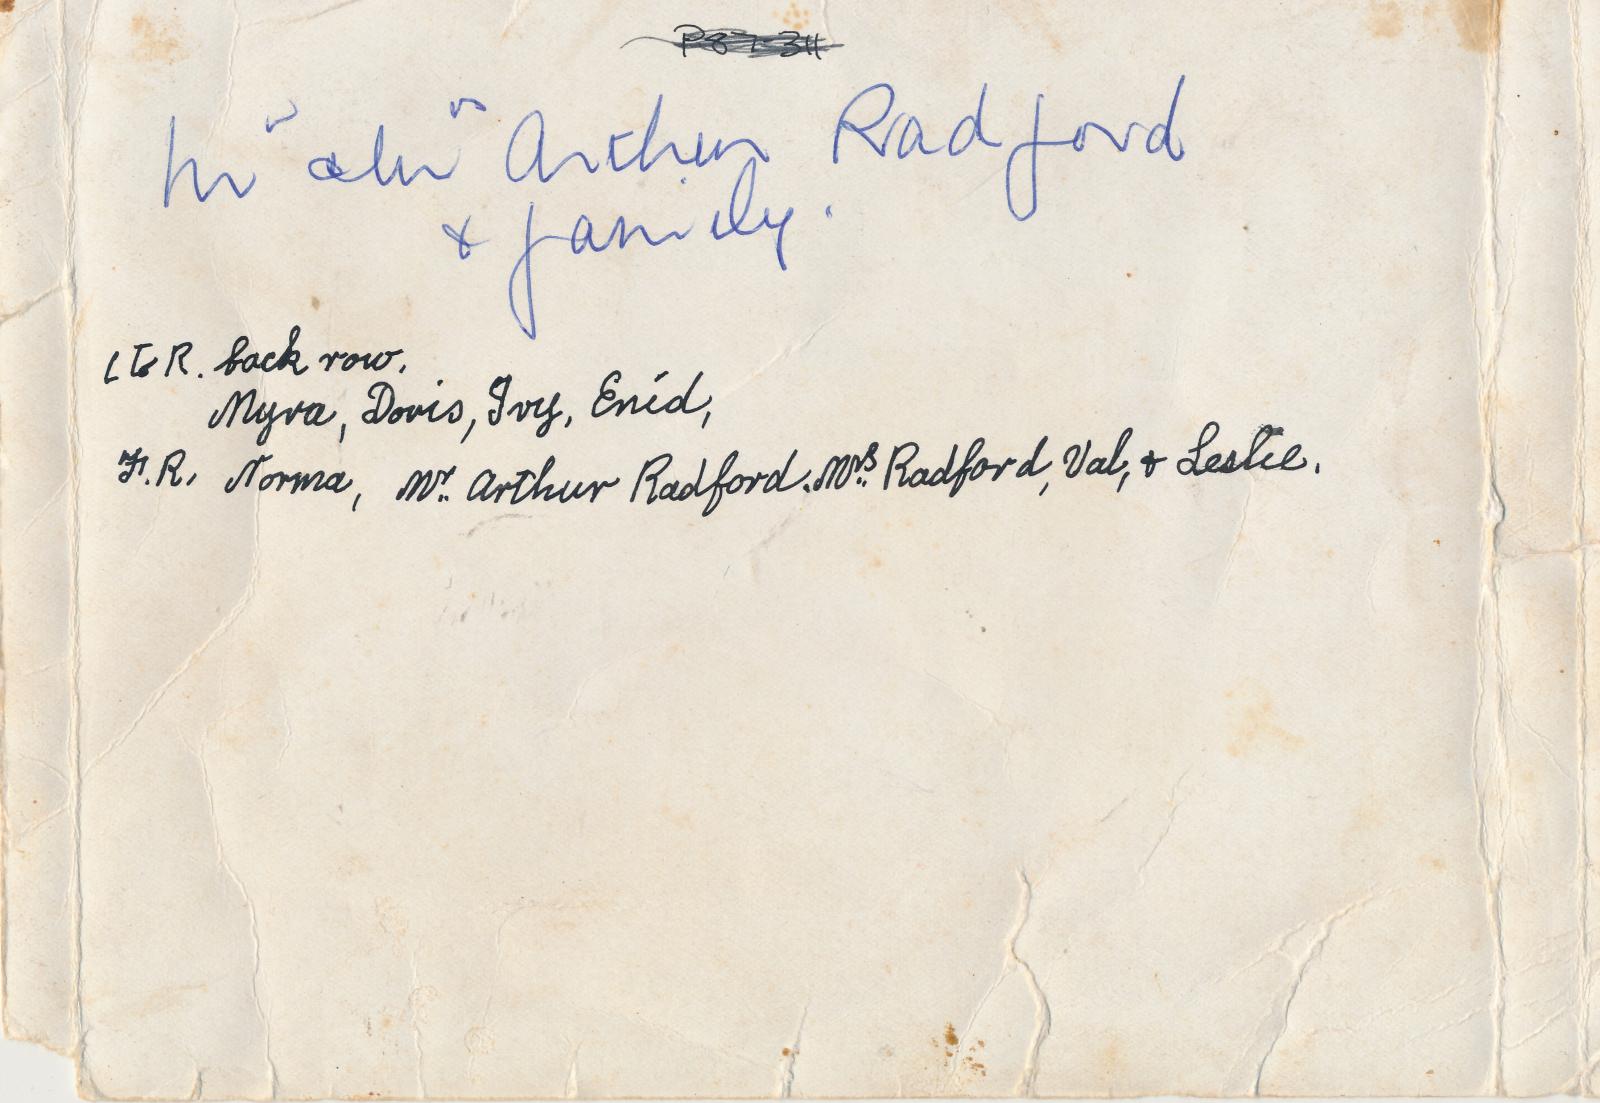 P87-311
Mr & Mrs Arthur Radford
& family.
L to R. back row.
Myra, Doris, Ivy, Enid,
F.R. Norma, Mr. Arthur Radford. Mrs Radford, Val, & Leslie.